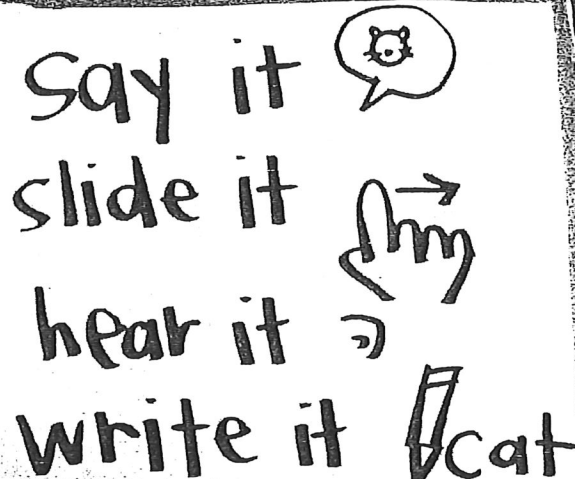 say it
slide it
hear it
write it cat